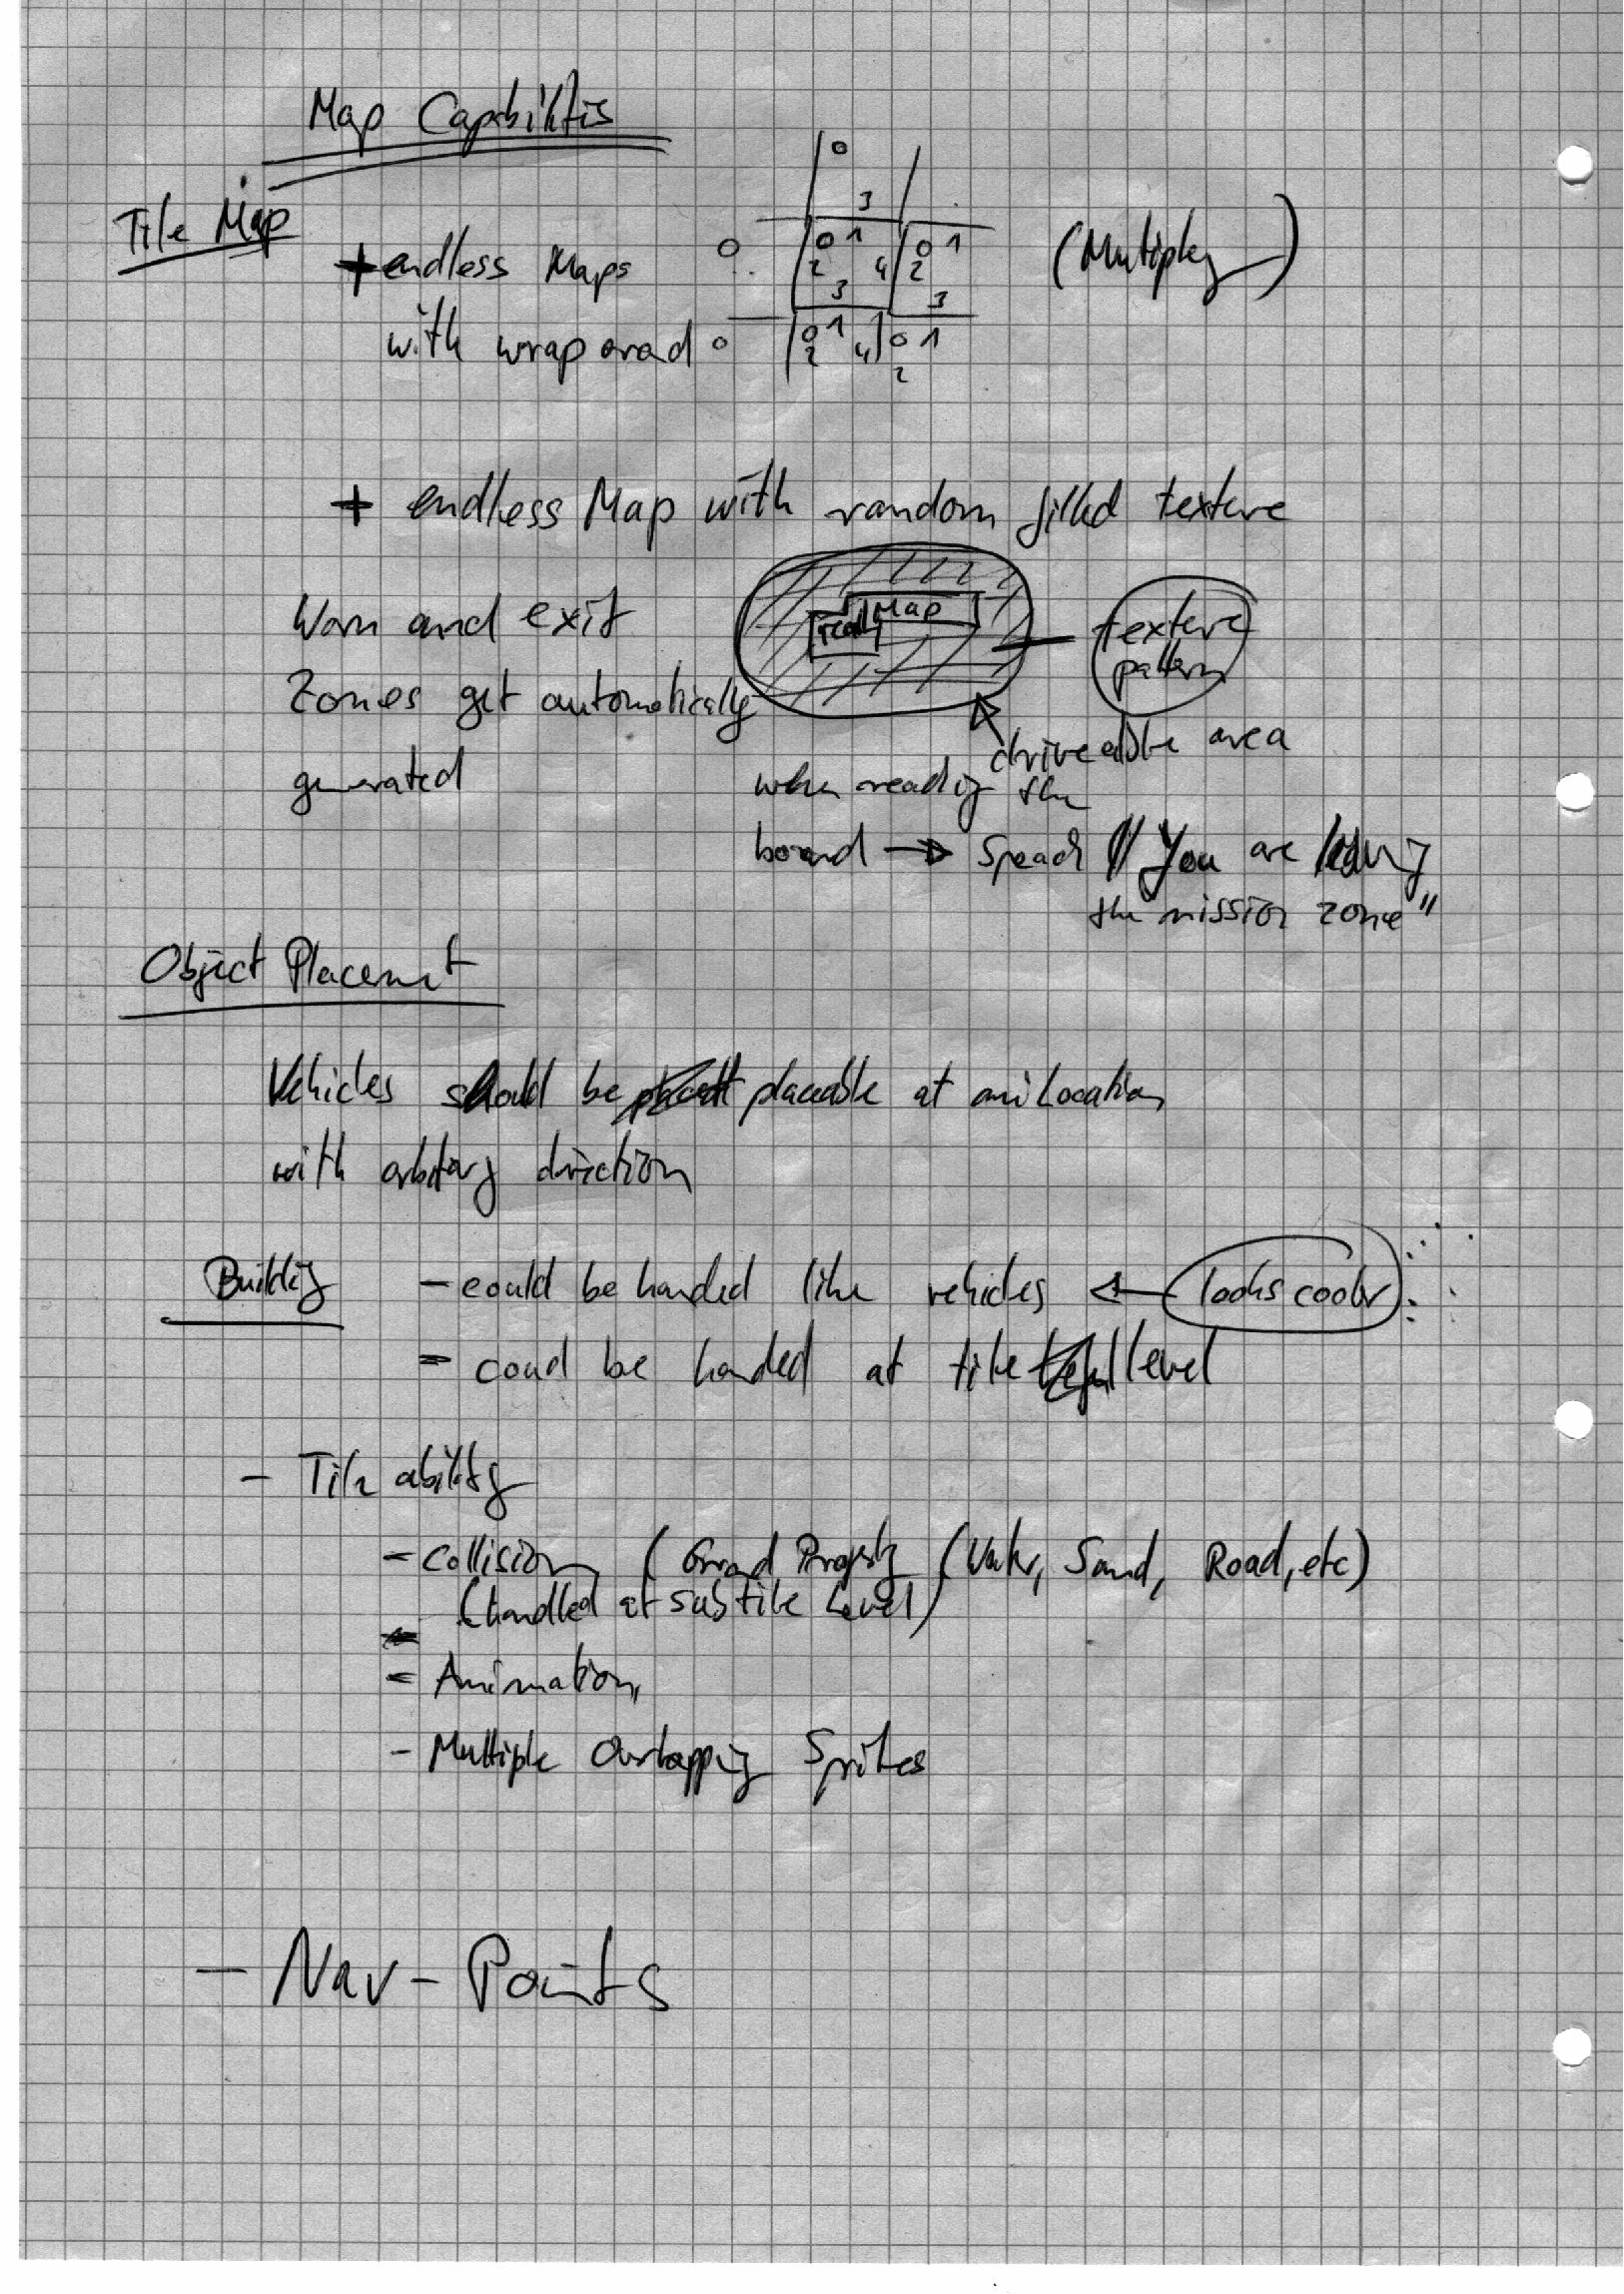 Map Capabilitis
Tile Map
+ endless Maps
with wrap orad
0
3
0
0 1
2 4
3
0 1
2
3
0
0 1
2 4
0 1
2
(Mutiply)
+ endless Map with random filled texture
Warn and exit
Zones get automatically
generated
real Map
texture
pattern
driveable area
when reading the
board → Speach "You are leaving
the mission zone"
Object Placemet
Vehicles should be placeable at ani Location
with arbitary direction
Building
- could be handed like vehicles ← looks cooler
- coud be handed at tile level
- Tile ability
- Collision (Groud Property (Water, Sand, Road, etc)
(handled at subtile Level)
- Animation
- Multiple Overlapping Sprites
- Nav-Points